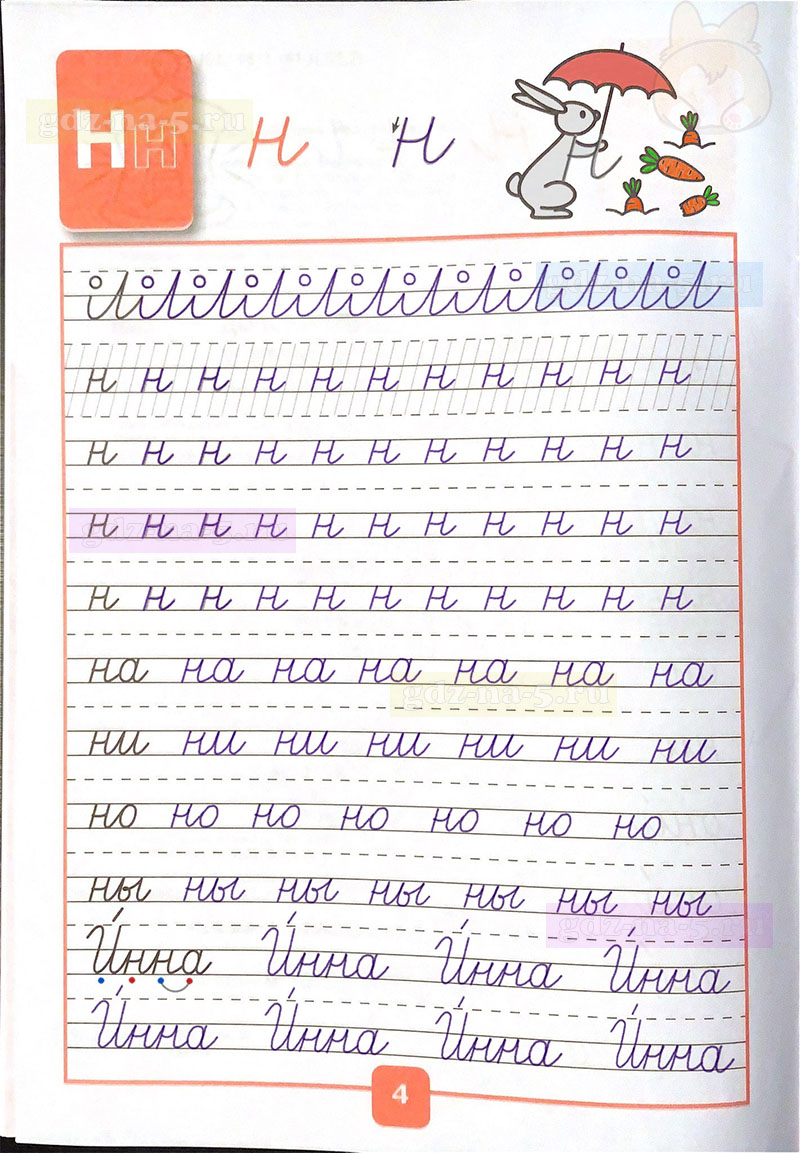 Нн н н н
gdz-na-5.ru
gdz-na-5.ru
н н н н н н н н н н н
н н н н н н н н н н н
н н н н н н н н н н н
gdz-na-5.ru
н н н н н н н н н н н
на на на на на на на
gdz-na-5.ru
ни ни ни ни ни ни ни
но но но но но но но
ны ны ны ны ны ны ны
gdz-na-5.ru
И́нна И́нна И́нна И́нна
И́нна И́нна И́нна И́нна
4